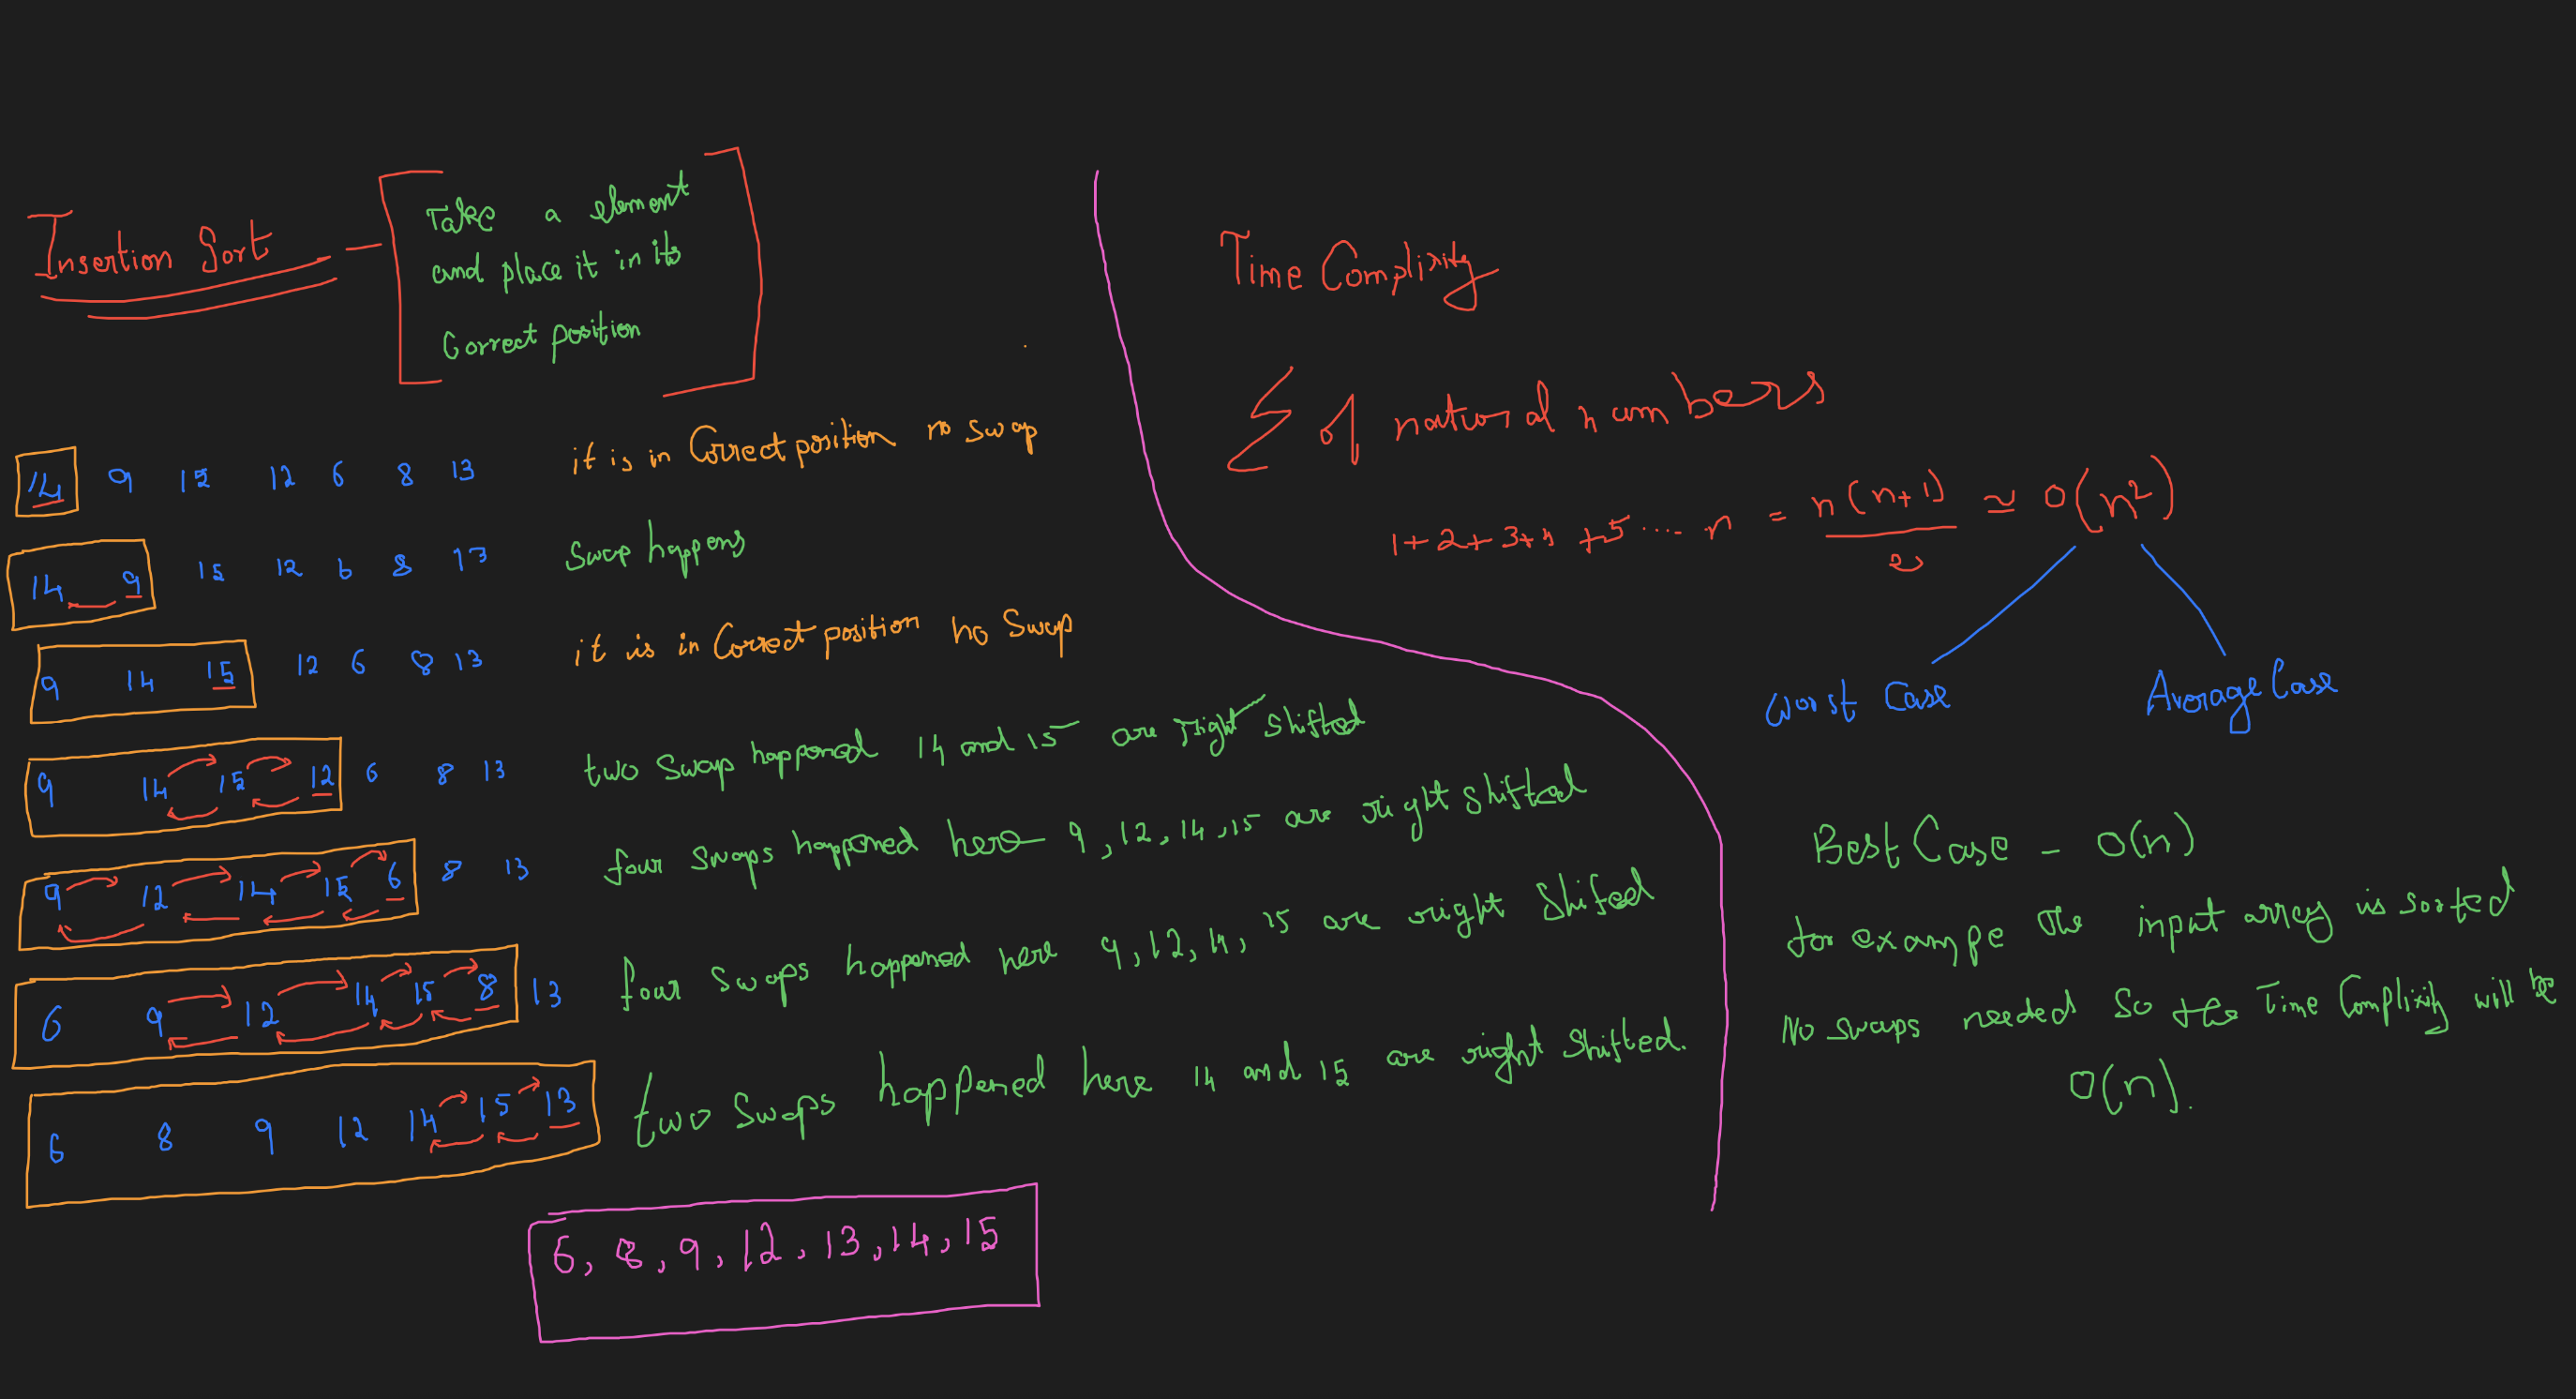 Insertion Sort
Take a element
and place it in its
Correct position
14 9 15 12 6 8 13 it is in Correct position no swap
14 9 15 12 6 8 13 Swap happens
9 14 15 12 6 8 13 it is in Correct position no Swap
9 14 15 12 6 8 13 two swap happened 14 and 15 are right shifted
9 12 14 15 6 8 13 four swaps happened here 9, 12, 14, 15 are right shifted
6 9 12 14 15 8 13 four swaps happened here 9, 12, 14, 15 are right Shifed
6 8 9 12 14 15 13 two swaps happened here 14 and 15 are right shifted.
6, 8, 9, 12, 13, 14, 15
Time Complixity
Σ of natural numbers
1+2+3+4+5 .... n = n(n+1)/2 ≃ O(n²)
Worst Case Average Case
Best Case - O(n)
for exampe the input array is sorted
No swaps needed So the Time Complixity will be
O(n).